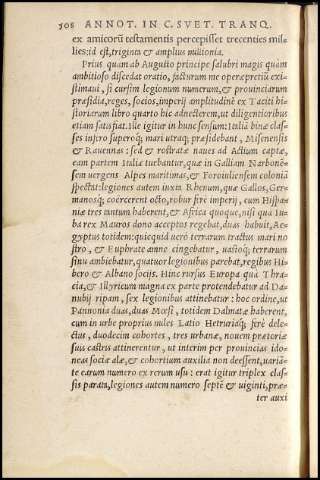 508 ANNOT. IN C. SVET. TRANQ.
ex amicorū testamentis percepisset trecenties mil-
lies:id est,triginta & amplius milionia.
Prius quam ab Augusto principe salubri magis quam
ambitioso discedat oratio, facturum me operæpretiū exi-
stimaui, si cursim legionum numerum,& prouinciarum
præsidia,reges, socios,imperij amplitudinē ex Taciti hi-
storiarum libro quarto hic adnecterem,ut diligentioribus
etiam satisfiat.Ille igitur in hunc sensum:Italiā binæ clas-
ses infero superoq; mari utraq; præsidebant , Misenensis
& Rauennas : sed & rostratæ naues ad Actium captæ,
eam partem Italiæ tuebantur,quæ in Galliam Narbonē-
sem uergens Alpes maritimas,& Foroiuliensem coloniā
spectat:legiones autem iuxta Rhenum,quæ Gallos,Ger-
manosq; coërcerent octo,robur fere imperij , cum Hispa-
niæ tres nutum haberent,& Africa quoque,nisi qua Iu-
ba rex Mauros dono acceptos regebat,duas habuit,Ae-
gyptus totidem:quicquid uerò terrarum tractus mari no
stro , & Euphrate amne cingebatur , uastoq; terrarum
sinu ambiebatur,quatuor legionibus parebat,regibus Hi-
bero & Albano socijs. Hinc rursus Europa quà Thra-
cia,& Illyricum magna ex parte protendebatur ad Da-
nubij ripam , sex legionibus attinebatur : hoc ordine,ut
Pannonia duas,duas Mœsi , totidem Dalmatæ haberent,
cum in urbe proprius miles Latio Hetruriaq; ferè dele-
ctus , duodecim cohortes , tres urbanæ, nouem prætoriæ
suis castris attinerentur , ut interim per prouincias ido-
neas sociæ alæ,& cohortium auxilia non deessent,uariā-
te earum numero ex rerum usu : erat igitur triplex clas-
sis parata,legiones autem numero septē & uiginti,præ-
ter auxi